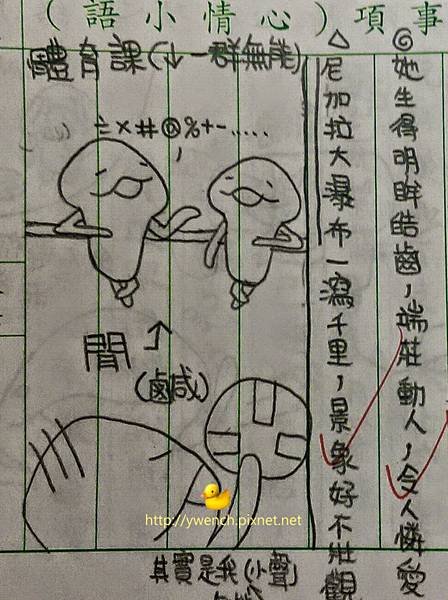 事項（心情小語）
◎她生得明眸皓齒，端莊動人，令人憐愛
△尼加拉大瀑布一瀉千里，景象好不壯觀
體育課(↓一群無能)
÷x#@%+-.....
閒
(鹵咸)
http://ywench.pixnet.net
其實是我(小聲)